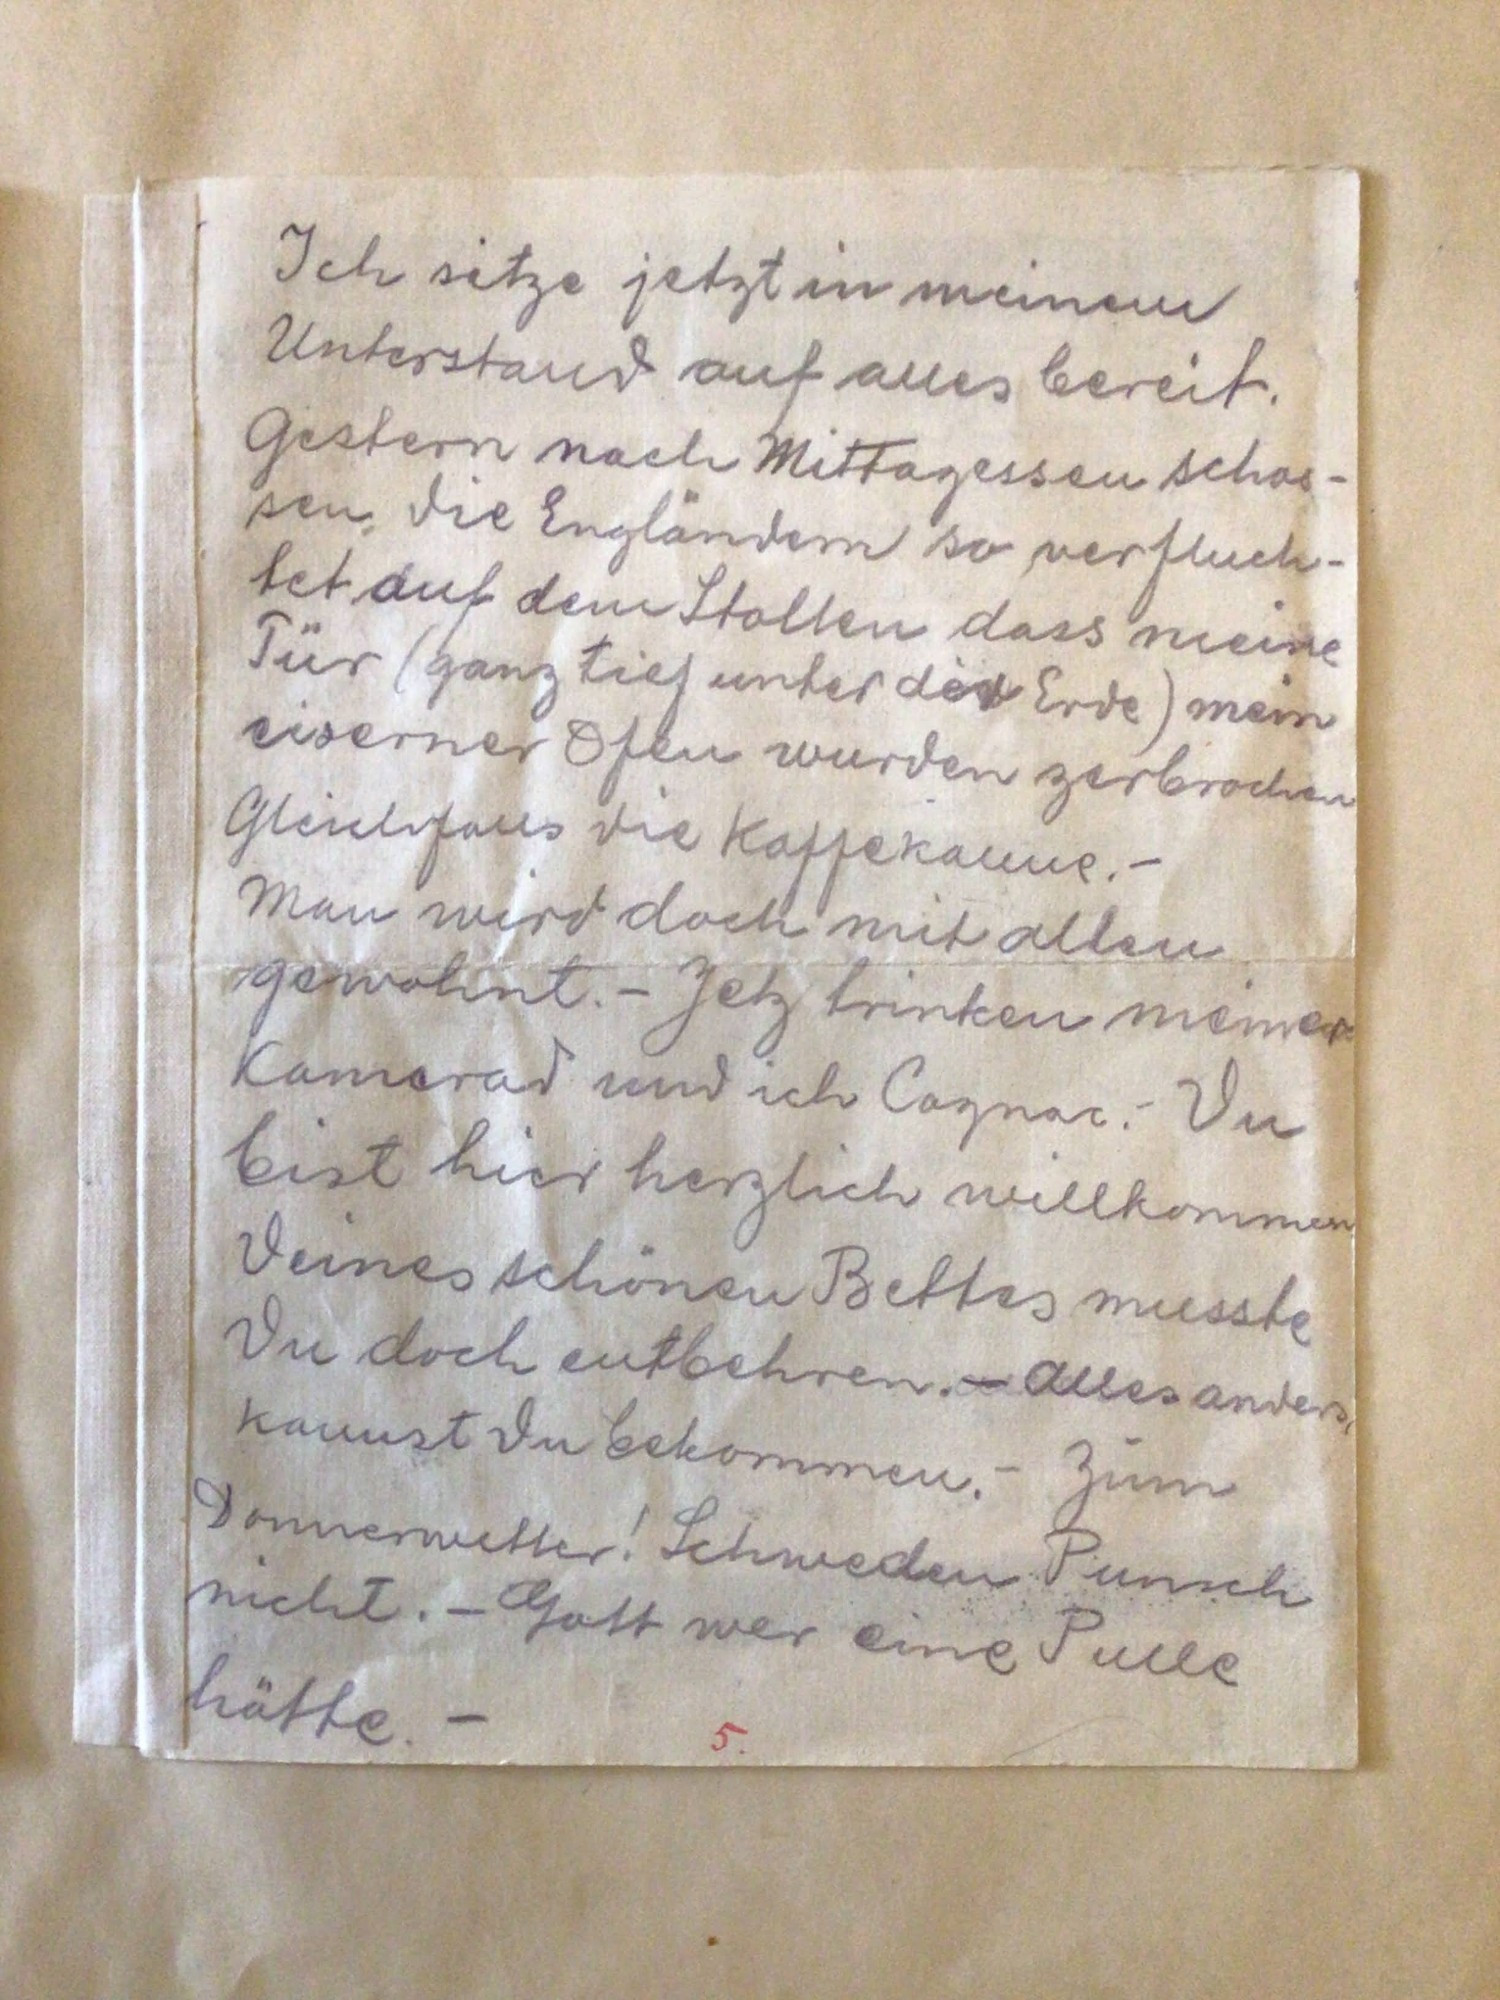 Ich sitze jetzt in meinem
Unterstand auf alles bereit.
Gestern nach Mittagessen schos-
sen die Engländern so verfluch-
tet auf dem Stollen dass meine
Tür (ganz tief unter der Erde) mein
eiserner Ofen wurden zerbrochen
Gleichfalls die Kaffekanne.-
Man wird doch mit allen
gewohnt.- Jetz trinken meiner
Kamerad und ich Cognac.- Du
bist hier herzlich willkommen
Deines schönen Bettes musste
Du doch entbehren.- Alles anders,
kannst Du bekommen.- Zum
Donnerwetter! Schweden Punsch
nicht.- Gott wer eine Pulle
hätte.-
5.